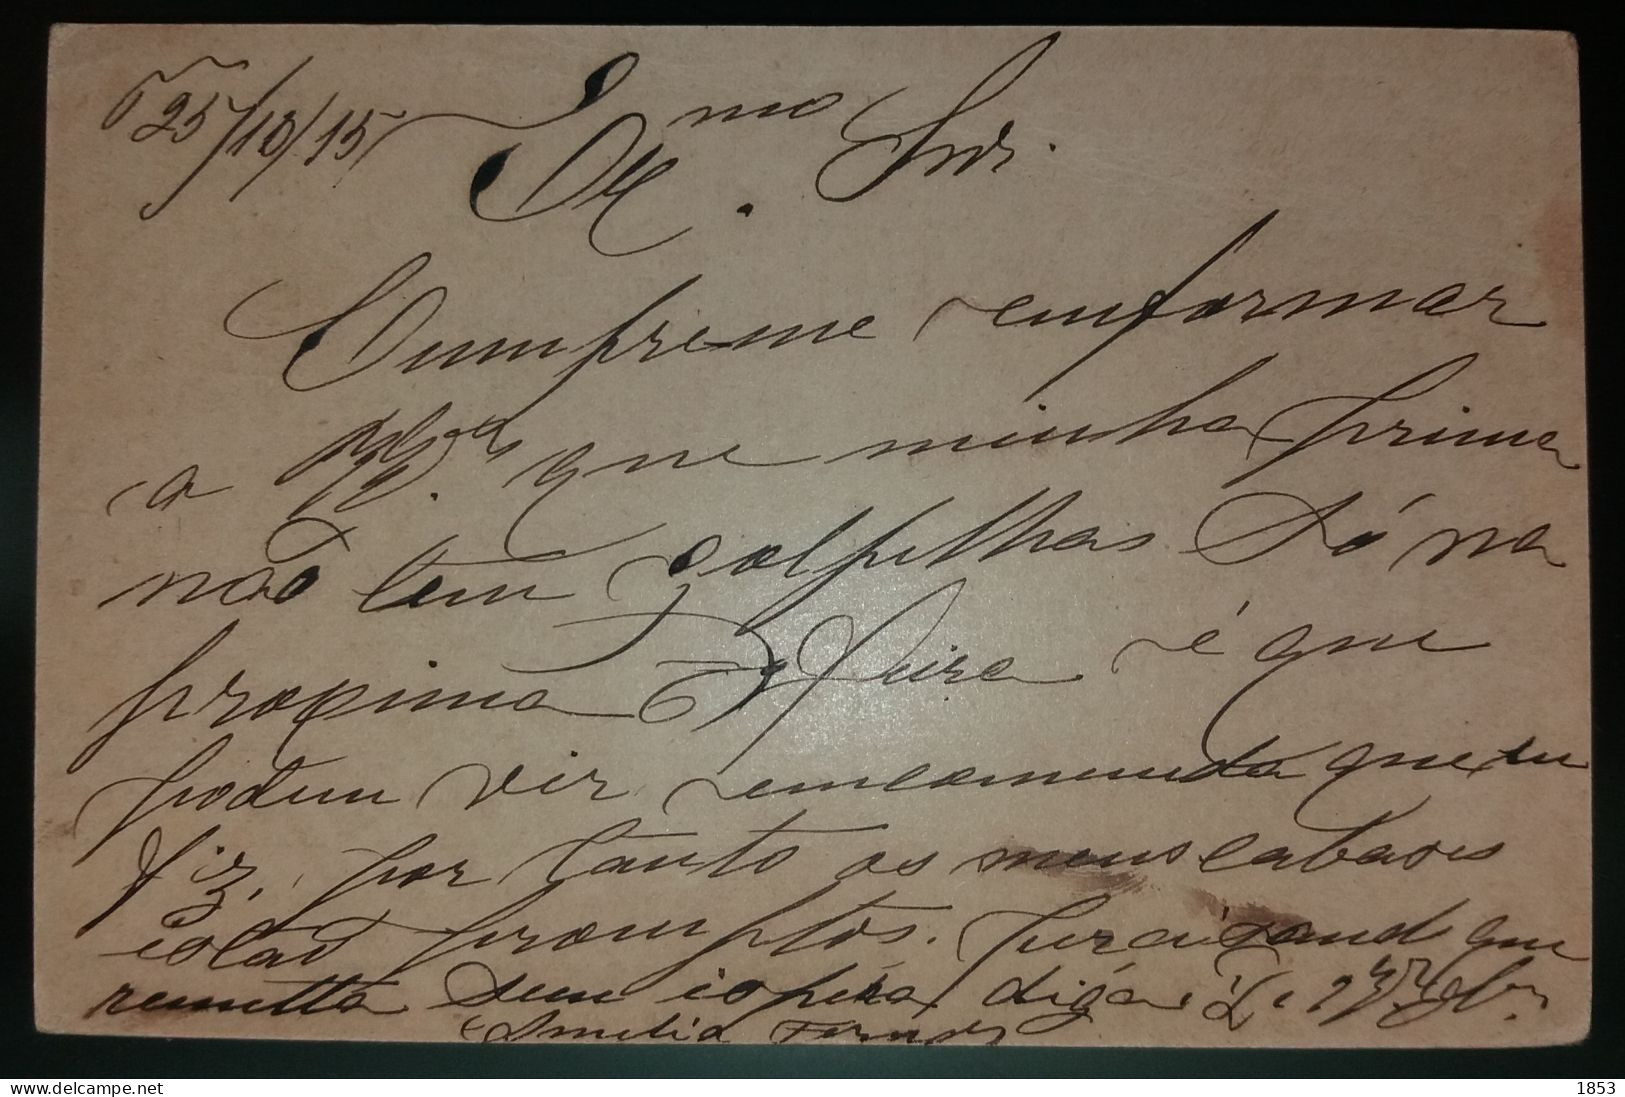 25/10/15 Ex.mo Snr.
Cumpreme emformar
a que minha prima
não tem golpilhas Só na
proxima feira é que
podem vir emcomenda que eu
fiz, por tanto os meus cabazes
estão promptos. percizando que
remetta sem espera, diga.
Amelia Fernds
delcampe.net
1853